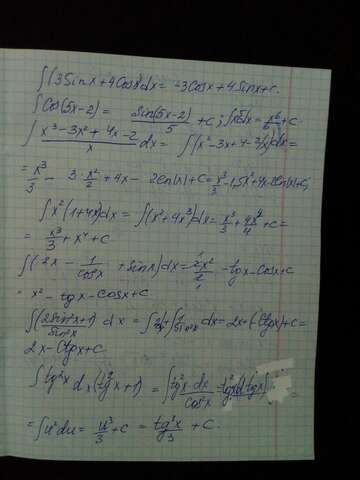 ∫(3Sinx+4Cosx)dx= -3Cosx+4Sinx+c.
∫Cos(5x-2)= Sin(5x-2)/5 +c; ∫x5dx= x⁶/6+c
∫ (x³-3x²+4x-2)/x dx= ∫(x²-3x+4-2/x)dx=
= x³/3 - 3·x²/2 +4x- 2ln|x|+c= x³/3-1,5x²+4x-2ln|x|+c;
∫x²(1+4x)dx=∫(x²+4x³)dx= x³/3+4x⁴/4+c=
= x³/3+x⁴+c
∫(2x- 1/cos²x +sinx)dx= 2x²/2 -tgx-cosx+c
= x²-tgx-cosx+c
∫(2sin²x+1)/sin²x dx=∫2dx+∫1/sin²x dx=2x+(-ctgx)+c=
2x-ctgx+c.
∫tg²x dx(tg²x+1) =∫tg²x dx/cos²x = tg²x d(tgx)=
=∫u²du= u³/3+c= tg³x/3 +c.